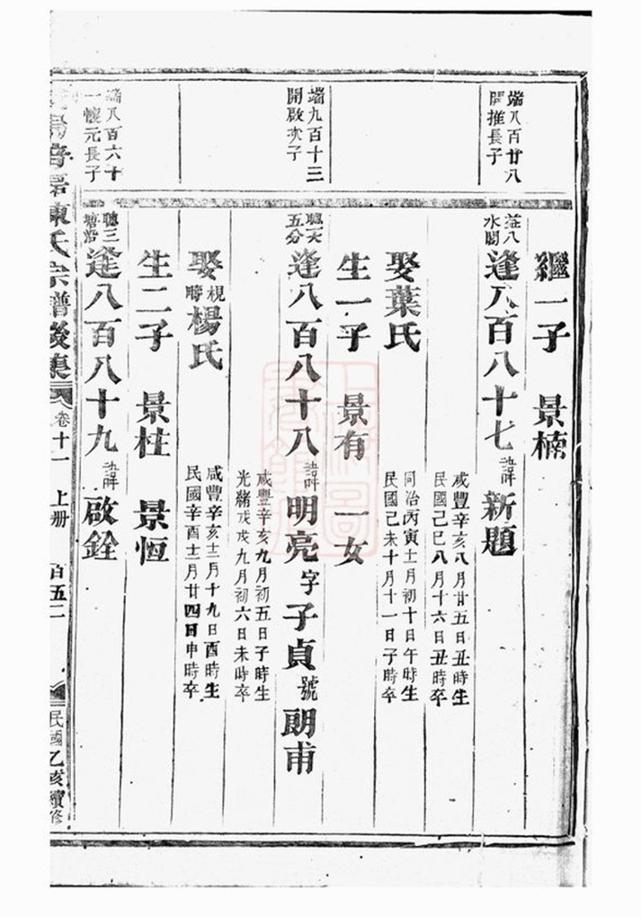 繼一子 景楠
端八百廿八
開推長子
益八
水閣
逢八百八十七 諱 新題
咸豐辛亥八月廿五日丑時生
民國己巳八月十六日丑時卒
娶葉氏
同治丙寅十一月初十日午時生
民國己未十月十一日子時卒
生一子 景有 一女
端九百十三
開啟次子
聰六
五分
逢八百八十八 諱 明亮 字 子貞 號 朗甫
咸豐辛亥九月初五日子時生
光緒戊戌九月初六日未時卒
娶 楊氏
咸豐辛亥十二月十九日酉時生
民國辛酉十二月廿四日申時卒
生二子 景柱 景恆
端八百六十
一懷元長子
聰三
塘沿
逢八百八十九 諱 啟銓
陳氏宗譜後集 卷十一 上册 百五二 民國乙亥續修